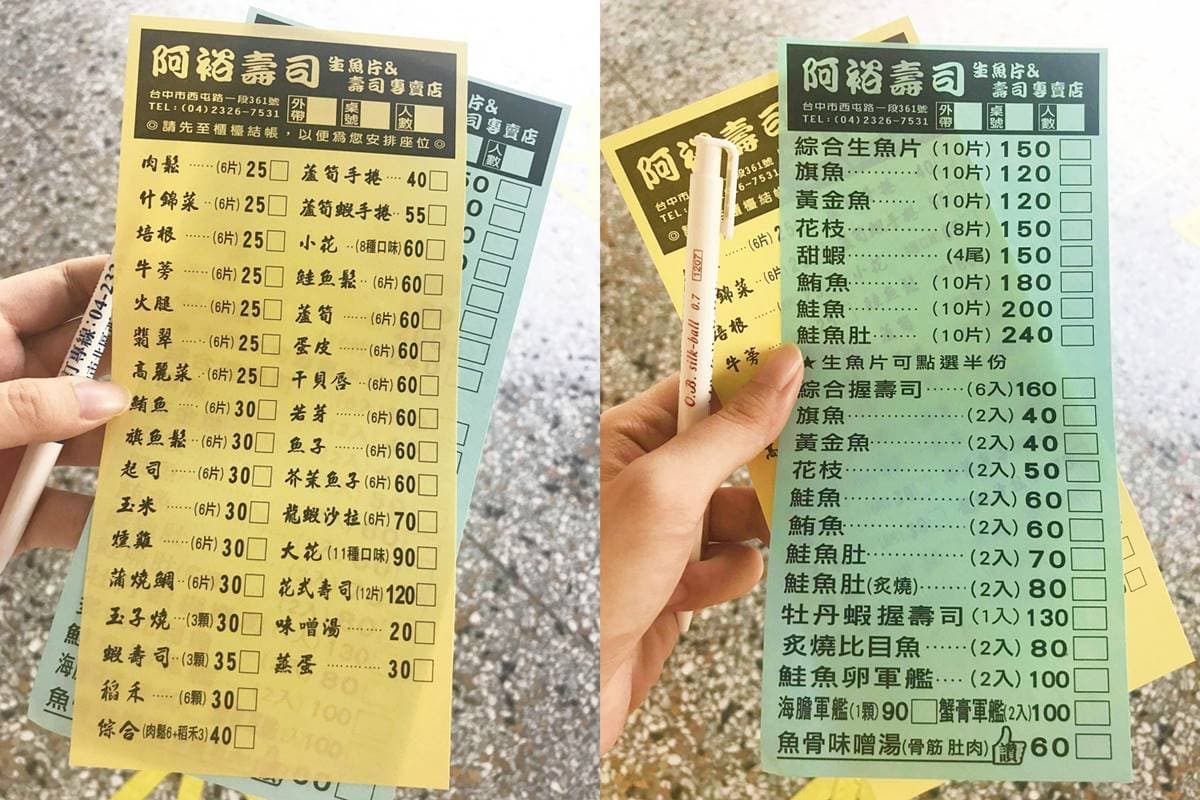 阿裕壽司 生魚片&
壽司專賣店
台中市西屯路一段361號
TEL:(04)2326-7531
外帶 桌號 人數
◎請先至櫃檯結帳,以便為您安排座位◎
肉鬆……(6片)25
什錦菜…(6片)25
培根……(6片)25
牛蒡……(6片)25
火腿……(6片)25
翡翠……(6片)25
高麗菜…(6片)25
鮪魚……(6片)30
旗魚鬆…(6片)30
起司……(6片)30
玉米……(6片)30
燻雞……(6片)30
蒲燒鯛…(6片)30
玉子燒…(3顆)30
蝦壽司…(3顆)35
稻禾……(6顆)30
綜合(肉鬆6+稻禾3)40
蘆筍手捲…40
蘆筍蝦手捲…55
小花…(8種口味)60
鮭魚鬆…(6片)60
蘆筍……(6片)60
蛋皮……(6片)60
干貝唇…(6片)60
若芽……(6片)60
魚子……(6片)60
芥茉魚子(6片)60
龍蝦沙拉(6片)70
大花(11種口味)90
花式壽司(12片)120
味噌湯……20
蒸蛋………30
片&
司專賣店
人數
阿裕壽司 生魚片&
壽司專賣店
台中市西屯路一段361號
TEL:(04)2326-7531
外帶 桌號 人數
綜合生魚片(10片)150
旗魚………(10片)120
黃金魚……(10片)120
花枝………(8片)150
甜蝦………(4尾)150
鮪魚………(10片)180
鮭魚………(10片)200
鮭魚肚……(10片)240
★生魚片可點選半份
綜合握壽司…(6入)160
旗魚…………(2入)40
黃金魚………(2入)40
花枝…………(2入)50
鮭魚…………(2入)60
鮪魚…………(2入)60
鮭魚肚………(2入)70
鮭魚肚(炙燒)……(2入)80
牡丹蝦握壽司(1入)130
炙燒比目魚……(2入)80
鮭魚卵軍艦…(2入)100
海膽軍艦(1顆)90 蟹膏軍艦(2入)100
魚骨味噌湯(骨筋肚肉)讚60
阿裕壽司
台中市西屯路
錦菜
培根
牛蒡
O.B. silk-ball 0.7 1207